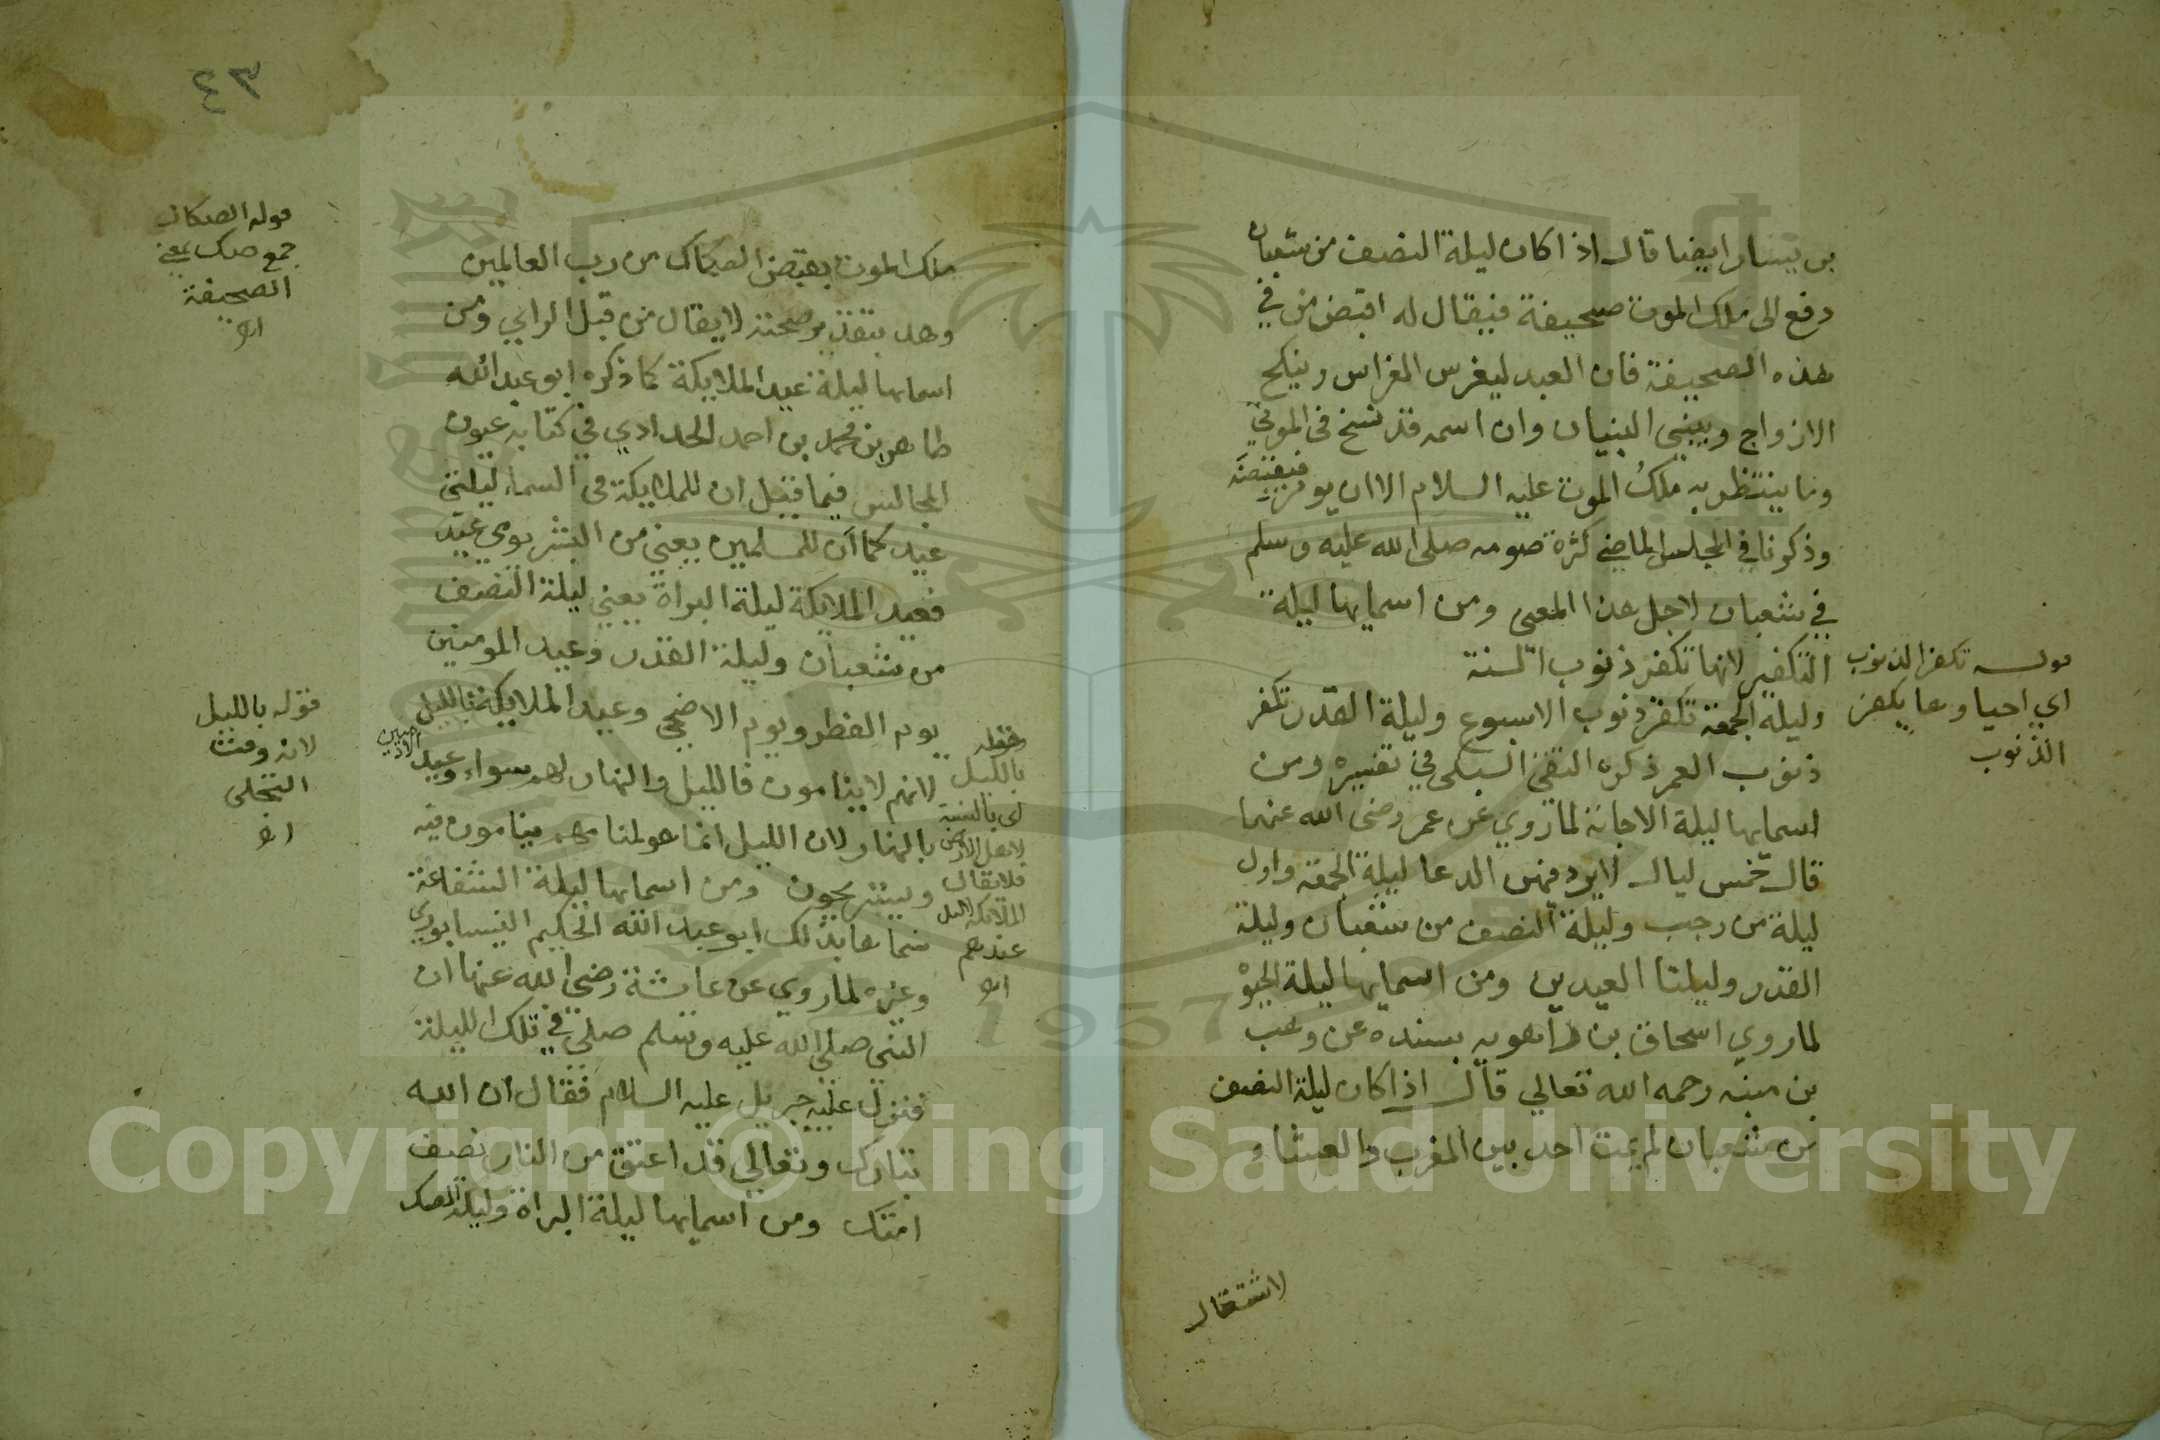 بن يسار ايضا قال اذا كان ليلة النصف من شعبان
دفع الى ملك الموت صحيفة فيقال له اقبض من في
هذه الصحيفة فان العبد ليغرس الغراس وينكح
الازواج ويبني البنيان وان اسمه قد نسخ في الموتى
وما ينتظر به ملك الموت عليه السلام الا ان يومر فيقبضه
وذكرنا في المجلس الماضي كثرة صومه صلى الله عليه وسلم
في شعبان لاجل هذا المعنى ومن اسمايها ليلة
التكفير لانها تكفر ذنوب السنة
وليلة الجمعة تكفر ذنوب الاسبوع وليلة القدر تكفر
ذنوب العمر ذكره التقي السبكي في تفسيره ومن
اسمايها ليلة الاجابة لما روي عن عمر رضى الله عنهما
قال خمس ليال لا يرد فيهن الدعا ليلة الجمعة واول
ليلة من رجب وليلة النصف من شعبان وليلة
القدر وليلتا العيدين ومن اسمايها ليلة الحيوة
لما روي اسحاق بن راهويه بسنده عن وهب
بن منبه رحمه الله تعالي قال اذا كان ليلة النصف
من شعبان لم يمت احد بين المغرب والعشاء
لاشتغال
قوله تكفر الذنوب
اي احياوها يكفر
الذنوب
٤٣
ملك الموت بقبض الصكاك من رب العالمين
وهد بتقدير صحته لا يقال من قبل الراي ومن
اسمايها ليلة عيد الملايكة كما ذكره ابو عبد الله
طاهر بن محمد بن احمد الحدادي في كتابه عيون
المجالس فيما قيل ان للملايكة في السماء ليلتي
عيد كما ان للمسلمين يعني من البشر يومي عيد
فعيد الملايكة ليلة البراة يعني ليلة النصف
من شعبان وليلة القدر وعيد المومنين
يوم الفطر ويوم الاضحى وعيد الملايكة بالليل
لانهم لا ينامون فالليل والنهار لهم سواء وعيد الادميين
بالنهار لان الليل انما هو لمنامهم ينامون فيه
ويستريحون ومن اسمايها ليلة الشفاعة
سماها بذلك ابو عبد الله الحكيم النيسابوري
وغيره لما روي عن عايشة رضى الله عنها ان
النبي صلى الله عليه وسلم صلى في تلك الليلة
فنزل عليه جبريل عليه السلام فقال ان الله
تبارك وتعالي قد اعتق من النار نصف
امتك ومن اسمايها ليلة البراة وليلة الصك
قوله الصكاك
جمع صك بمعنى
الصحيفة
اه
قوله بالليل
لانه وقت
التجلي
اه
بالليل
اي بالنسبة
فلا يقال
عندهم
اه
Copyright © King Saud University
1957